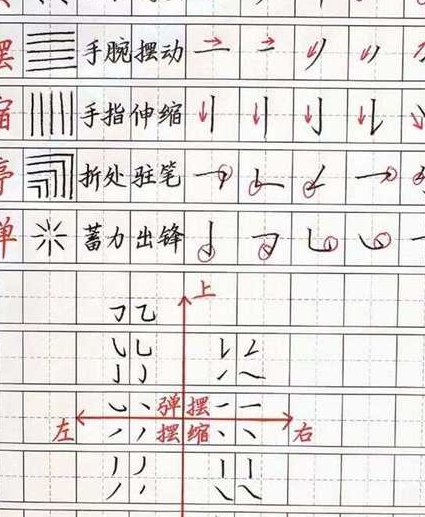 摆 手腕摆动
缩 手指伸缩
停 折处驻笔
弹 蓄力出锋
上
弹 摆
左 右
摆 缩